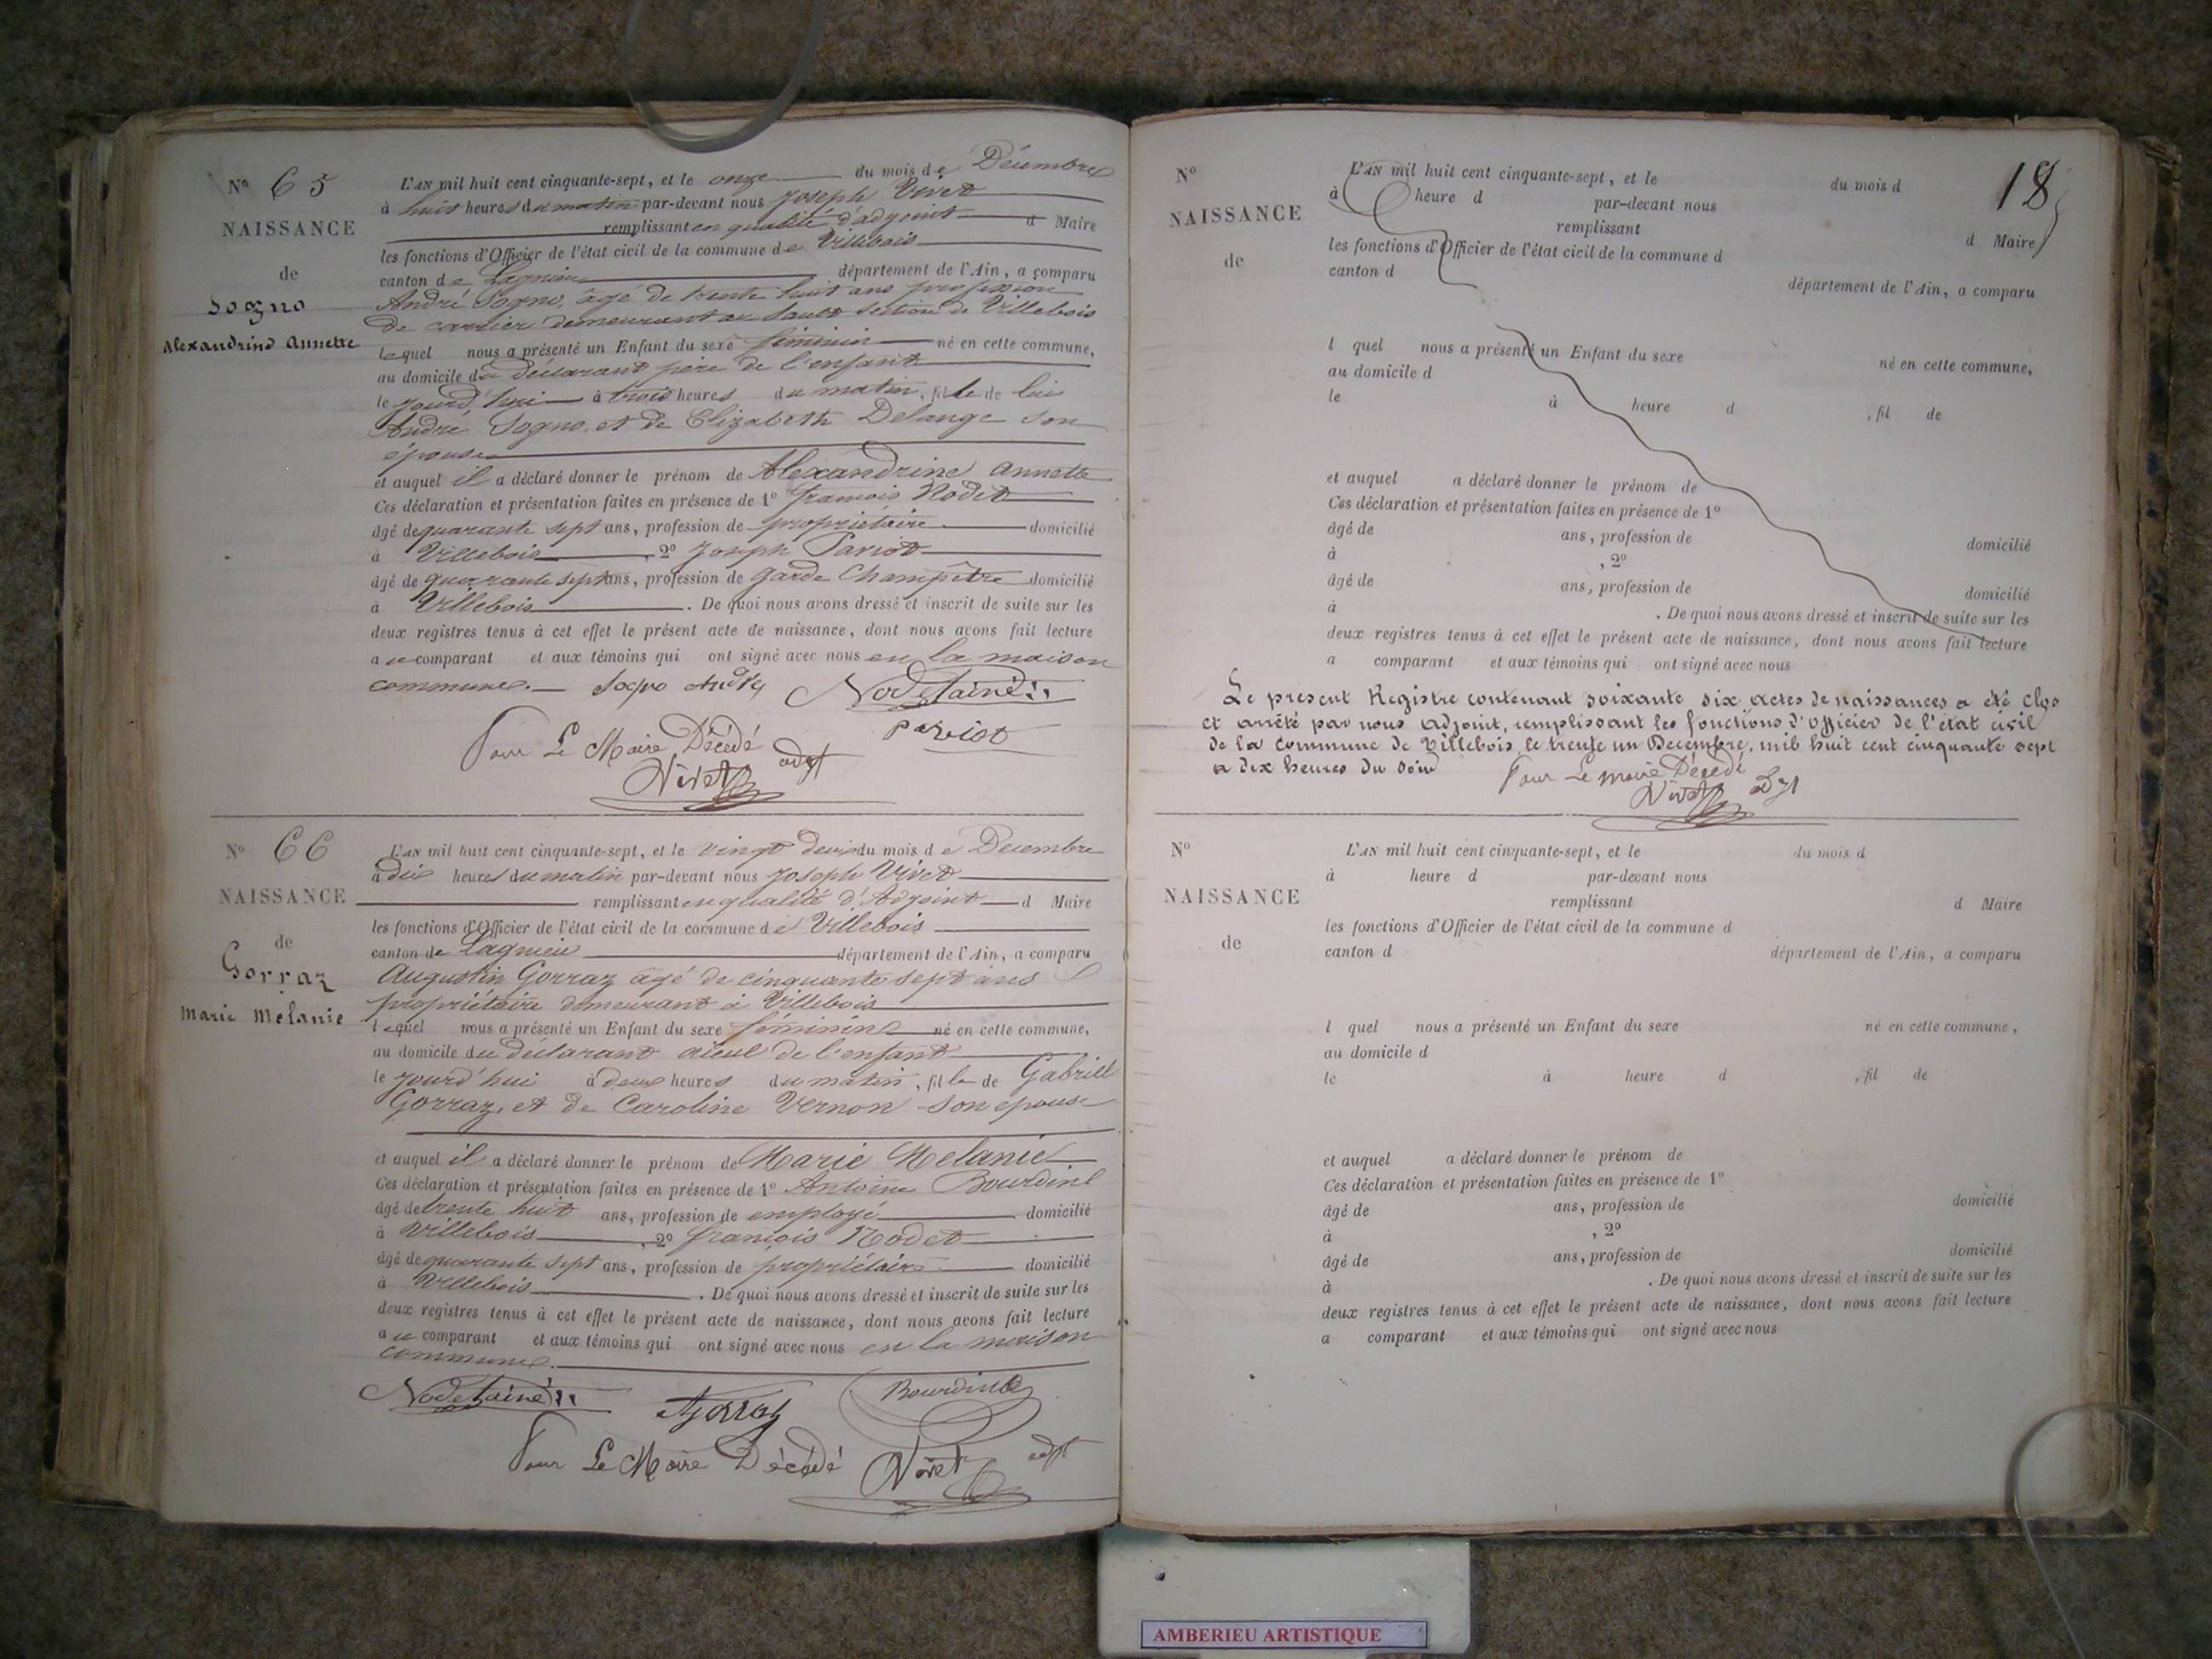 Nº 65
NAISSANCE
de
Sogno
Alexandrine Annette
L'AN mil huit cent cinquante-sept, et le onze du mois de Décembre
à huit heures du matin par-devant nous Joseph Vivet
remplissant en qualité d'adjoint d Maire
les fonctions d'Officier de l'état civil de la commune de Villebois
canton de Lagnieu département de l'Ain, a comparu
André Sogno, âgé de trente huit ans profession
de carrier demeurant au Sault section de Villebois
lequel nous a présenté un Enfant du sexe féminin né en cette commune,
au domicile du déclarant père de l'enfant
le jourd'hui à trois heures du matin, fille de lui
André Sogno, et de Elizabeth Delange son
épouse
et auquel il a déclaré donner le prénom de Alexandrine Annette
Ces déclaration et présentation faites en présence de 1º françois Nodet
âgé de quarante sept ans, profession de propriétaire domicilié
à Villebois, 2º Joseph Pariot
âgé de quarante sept ans, profession de garde Champêtre domicilié
à Villebois. De quoi nous avons dressé et inscrit de suite sur les
deux registres tenus à cet effet le présent acte de naissance, dont nous avons fait lecture
au comparant et aux témoins qui ont signé avec nous en la maison
commune. Sogno André Nodet ainé
Pariot
Pour Le Maire Décédé
Vivet adjt
Nº 66
NAISSANCE
de
Gorraz
Marie Mélanie
L'AN mil huit cent cinquante-sept, et le vingt deux du mois de Decembre
à dix heures du matin par-devant nous Joseph Vivet
remplissant en qualité d'Adjoint d Maire
les fonctions d'Officier de l'état civil de la commune de Villebois
canton de Lagnieu département de l'Ain, a comparu
Augustin Gorraz âgé de cinquante sept ans
propriétaire demeurant à Villebois
lequel nous a présenté un Enfant du sexe féminin né en cette commune,
au domicile du déclarant aieul de l'enfant
le jourd'hui à deux heures du matin, fille de Gabriel
Gorraz, et de Caroline Vernon son epouse
et auquel il a déclaré donner le prénom de Marie Melanie
Ces déclaration et présentation faites en présence de 1º Antoine Bourdin
âgé de trente huit ans, profession de employé domicilié
à Villebois, 2º françois Nodet
âgé de quarante sept ans, profession de propriétaire domicilié
à Villebois. De quoi nous avons dressé et inscrit de suite sur les
deux registres tenus à cet effet le présent acte de naissance, dont nous avons fait lecture
au comparant et aux témoins qui ont signé avec nous en la maison
commune.
Nodet ainé Gorraz Bourdin
Pour Le Maire Décédé Vivet adjt
18
Nº
NAISSANCE
de
L'AN mil huit cent cinquante-sept, et le du mois d
à heure d par-devant nous
remplissant d Maire
les fonctions d'Officier de l'état civil de la commune d
canton d département de l'Ain, a comparu
l quel nous a présenté un Enfant du sexe né en cette commune,
au domicile d
le à heure d , fil de
et auquel a déclaré donner le prénom de
Ces déclaration et présentation faites en présence de 1º
âgé de ans, profession de domicilié
à , 2º
âgé de ans, profession de domicilié
à . De quoi nous avons dressé et inscrit de suite sur les
deux registres tenus à cet effet le présent acte de naissance, dont nous avons fait lecture
a comparant et aux témoins qui ont signé avec nous
Le present Registre contenant soixante six actes de naissances a été clos
et arrêté par nous adjoint, remplissant les fonctions d'officier de l'état civil
de la commune de Villebois le trente un Decembre, mil huit cent cinquante sept
a dix heures du soir
Pour Le maire Décedé
Vivet adjt
Nº
NAISSANCE
de
L'AN mil huit cent cinquante-sept, et le du mois d
à heure d par-devant nous
remplissant d Maire
les fonctions d'Officier de l'état civil de la commune d
canton d département de l'Ain, a comparu
l quel nous a présenté un Enfant du sexe né en cette commune,
au domicile d
le à heure d , fil de
et auquel a déclaré donner le prénom de
Ces déclaration et présentation faites en présence de 1º
âgé de ans, profession de domicilié
à , 2º
âgé de ans, profession de domicilié
à . De quoi nous avons dressé et inscrit de suite sur les
deux registres tenus à cet effet le présent acte de naissance, dont nous avons fait lecture
a comparant et aux témoins qui ont signé avec nous
AMBERIEU ARTISTIQUE